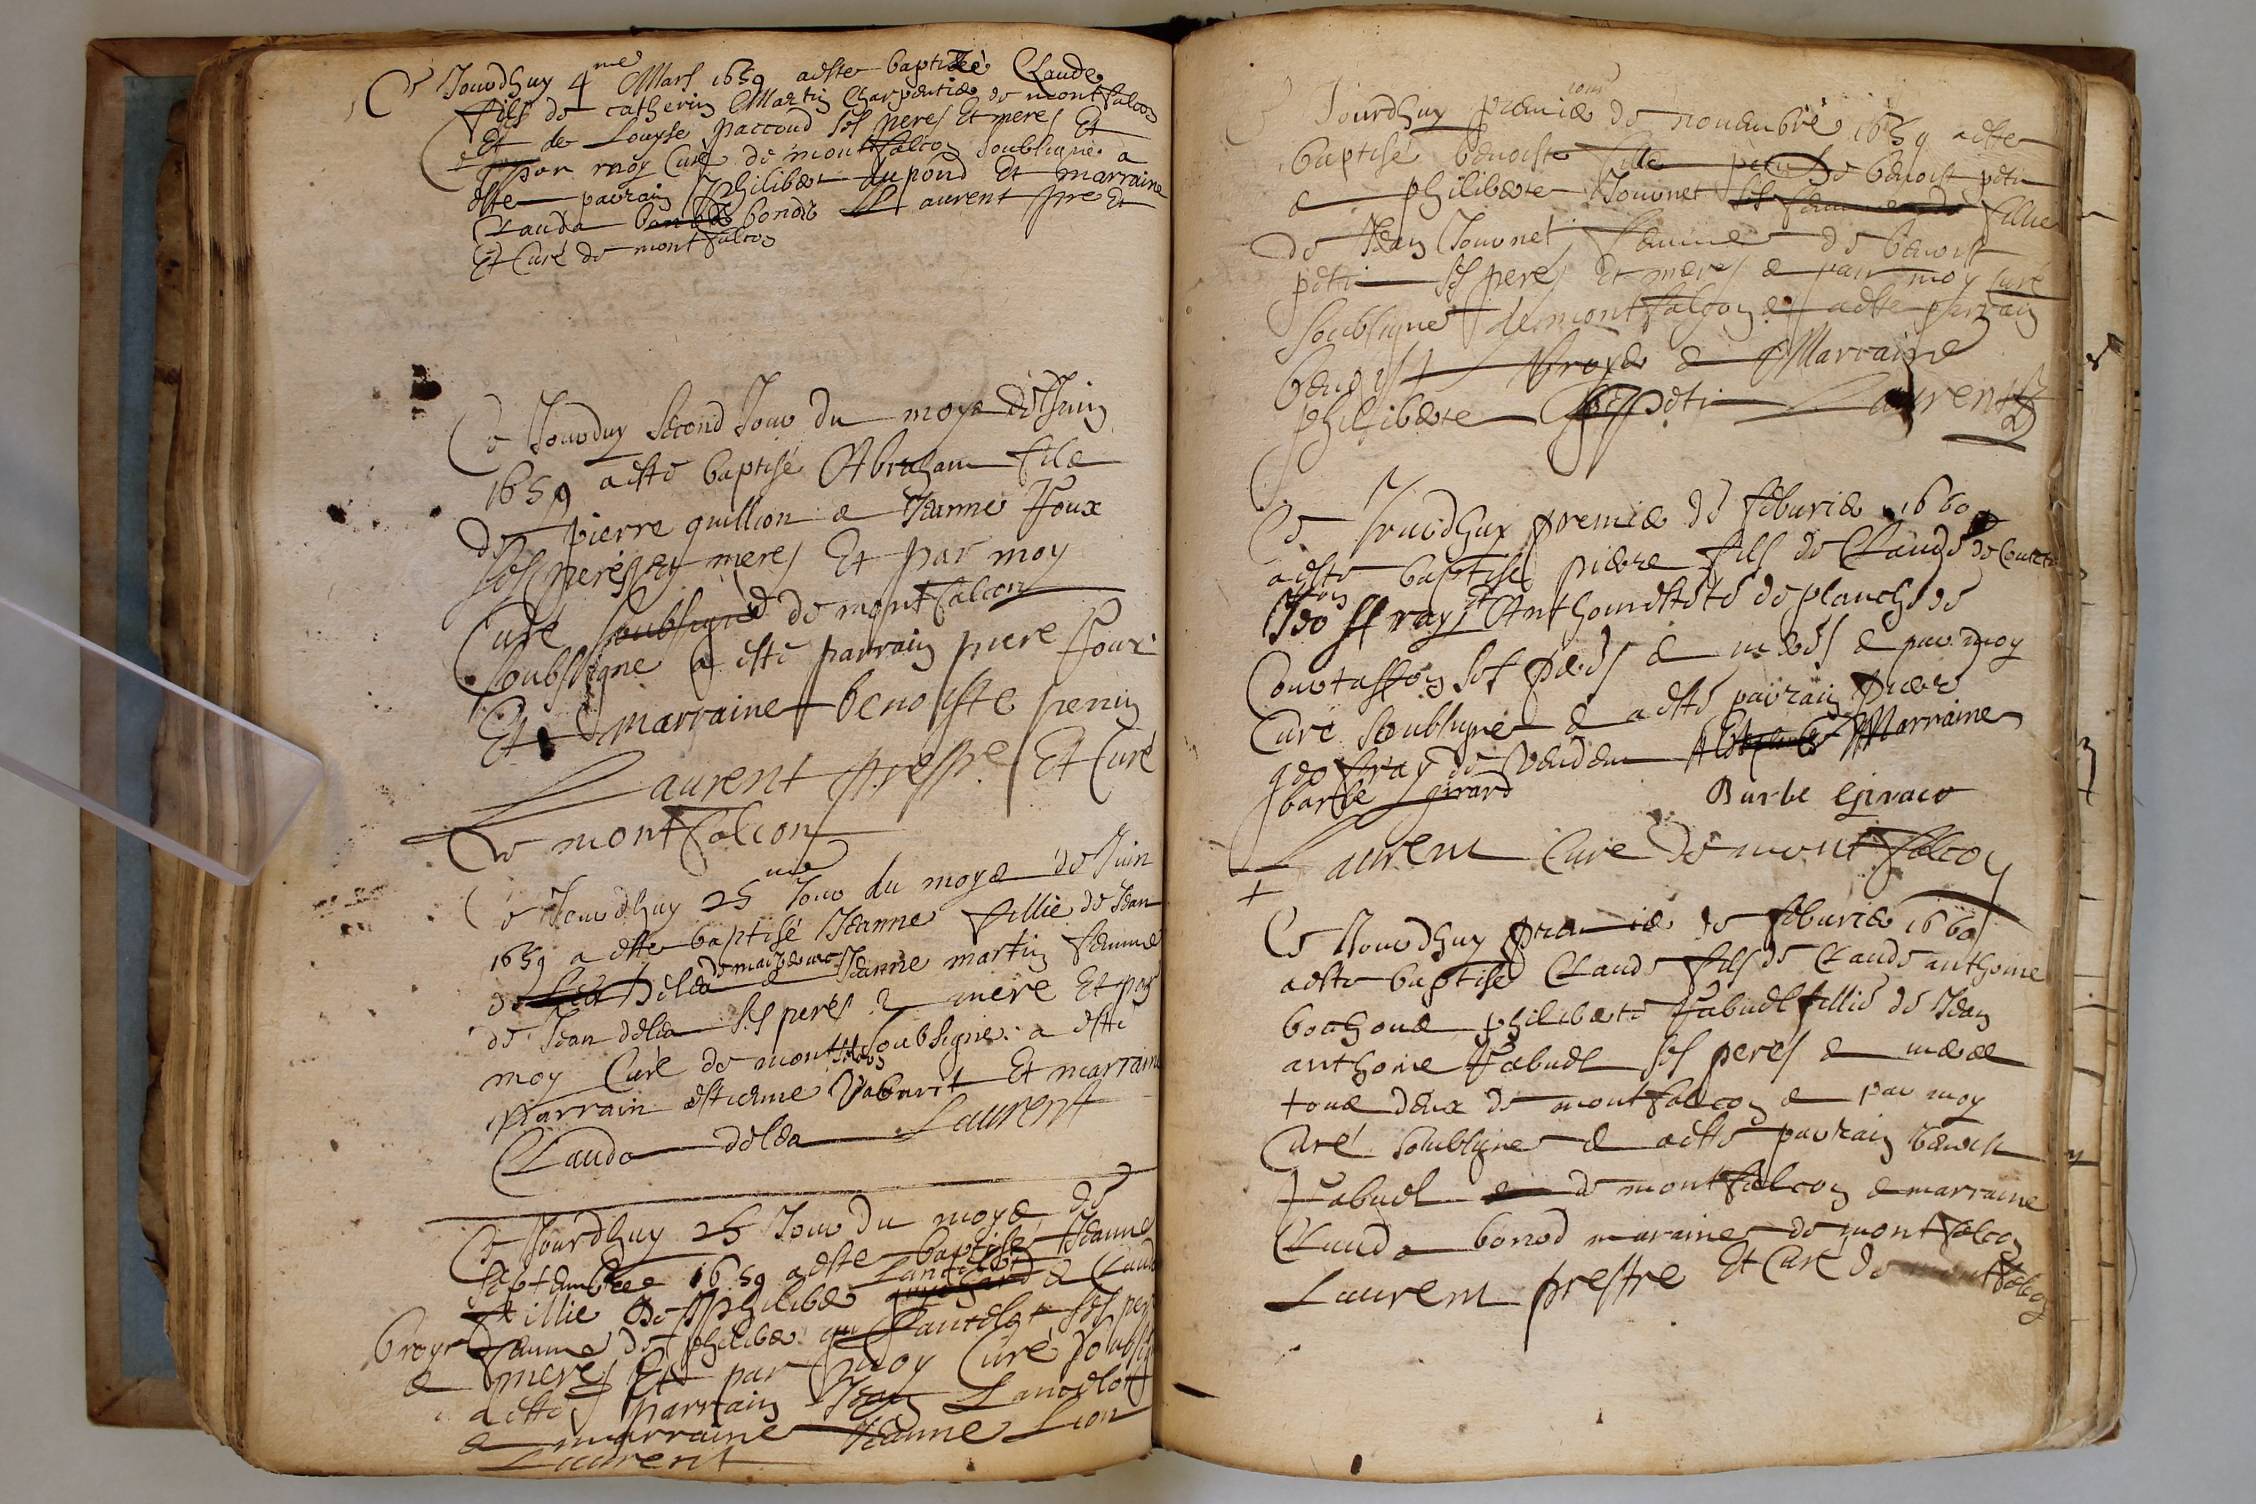 Ce Jourdhuy 4me Mars 1659 a este baptizé Claude
fils de catherin Martin Charpentier de montfalcon
Et de Louyse paccoud ses peres Et meres Et
par moy Curé de montfalcon soubsigné a
este parrain philibert dupond Et marraine
Clauda bonod Laurent pre Et
Et Curé de montfalcon
Ce Jourduy second Jour du moys de Juin
1659 a esté baptisé Abraham fils
de pierre guillion & Jeanne Foux
ses peres Et meres Et par moy
Curé soubsigné de montfalcon
soubsigne a esté parrain piere Foux
Et marraine benoiste perrin
Laurent prespre Et Curé
de montfalcon
Ce Jourdhuy 25me Jour du moys de Juin
1659 a este baptisé Jeanne fillie de Jean
delea & Jeanne martin femme
de Jean delea ses peres & mere Et par
moy Curé de montfalcon soubsigné a esté
parrain estienne Vabuet Et marraine
Clauda delea Laurent
Ce Jourdhuy 25 Jour du moys de
septembre 1659 a este baptisé Jeanne
fillie de philiber Lancelot & Claud
broye femme de philiber Lancelot ses per
& meres Et par moy Curé soubsig
a esté parrain Jean Lancelot
& marraine Jeanne Lion
Laurent
Ce Jourdhuy premier Jour de novembre 1659 a este
baptisé benoiste fille de benoist peti
& philiberte Jouvnet ses femme de fillie
de Jean Jouvnet femme de benoist
peti ses peres Et meres & par moy curé
soubsigné de montfalcon & a este parrain
benoist broye & Marraine
philiberte peti Laurent
Ce Jourdhuy premier de feburier 1660
a esté baptisé pierre fils de Claude de Courta
son
Jeoffray et Anthoinette de planche de
Courtasson ses peres & meres & par moy
Curé soubsigné & a esté parrain pierre
geoffray de Vendem Marraine
barbe girard Burbe Giraar
Laurent Curé de montfalcon
Ce Jourdhuy premier de feburier 1660
a este baptisé Claude fils de Claude anthoine
bochone philiberte Fabuel fillie de Jean
anthoine Fabuel ses peres & mere
tous deux de montfalcon & par moy
Curé soubsigné & a esté parrain benoist
Fabuel de montfalcon & marraine
Clauda bonod maraine de montfalcon
Laurent prestre Et Curé de montfalcon